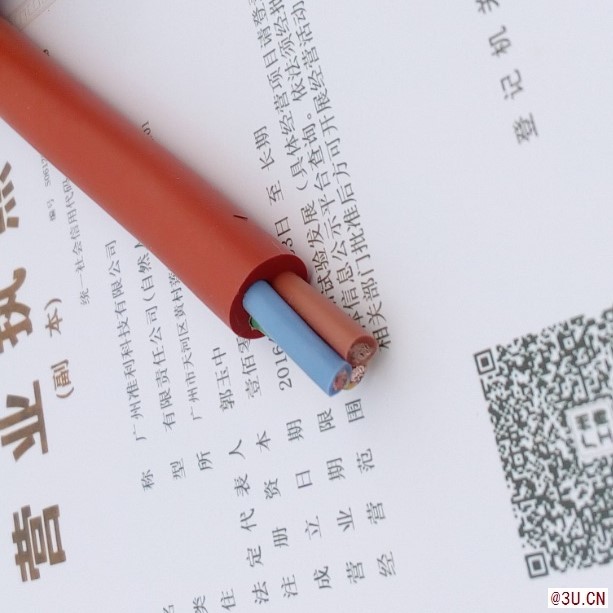 营业执照
(副 本)
编号
统一社会信用代码
称 广州准利科技有限公司
类 型 有限责任公司(自然人
住 所 广州市天河区黄村
法定代表人 郭玉中
注册资本 壹佰
成立日期 2016
营业期限 日 至 长期
经营范围 试验发展(具体经营项目请登
信息公示平台查询。依法须经
相关部门批准后方可开展经营活动
登记机关
@3U.CN